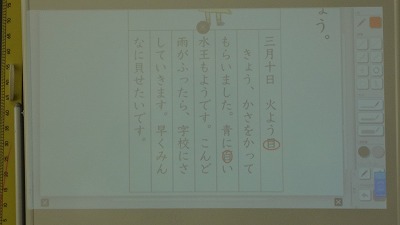 ょう。
三月十日　火よう目
きょう、かさをかって
もらいました。青に百い
水王もようです。こんど
雨がふったら、字校にさ
していきます。早くみん
なに貝せたいです。